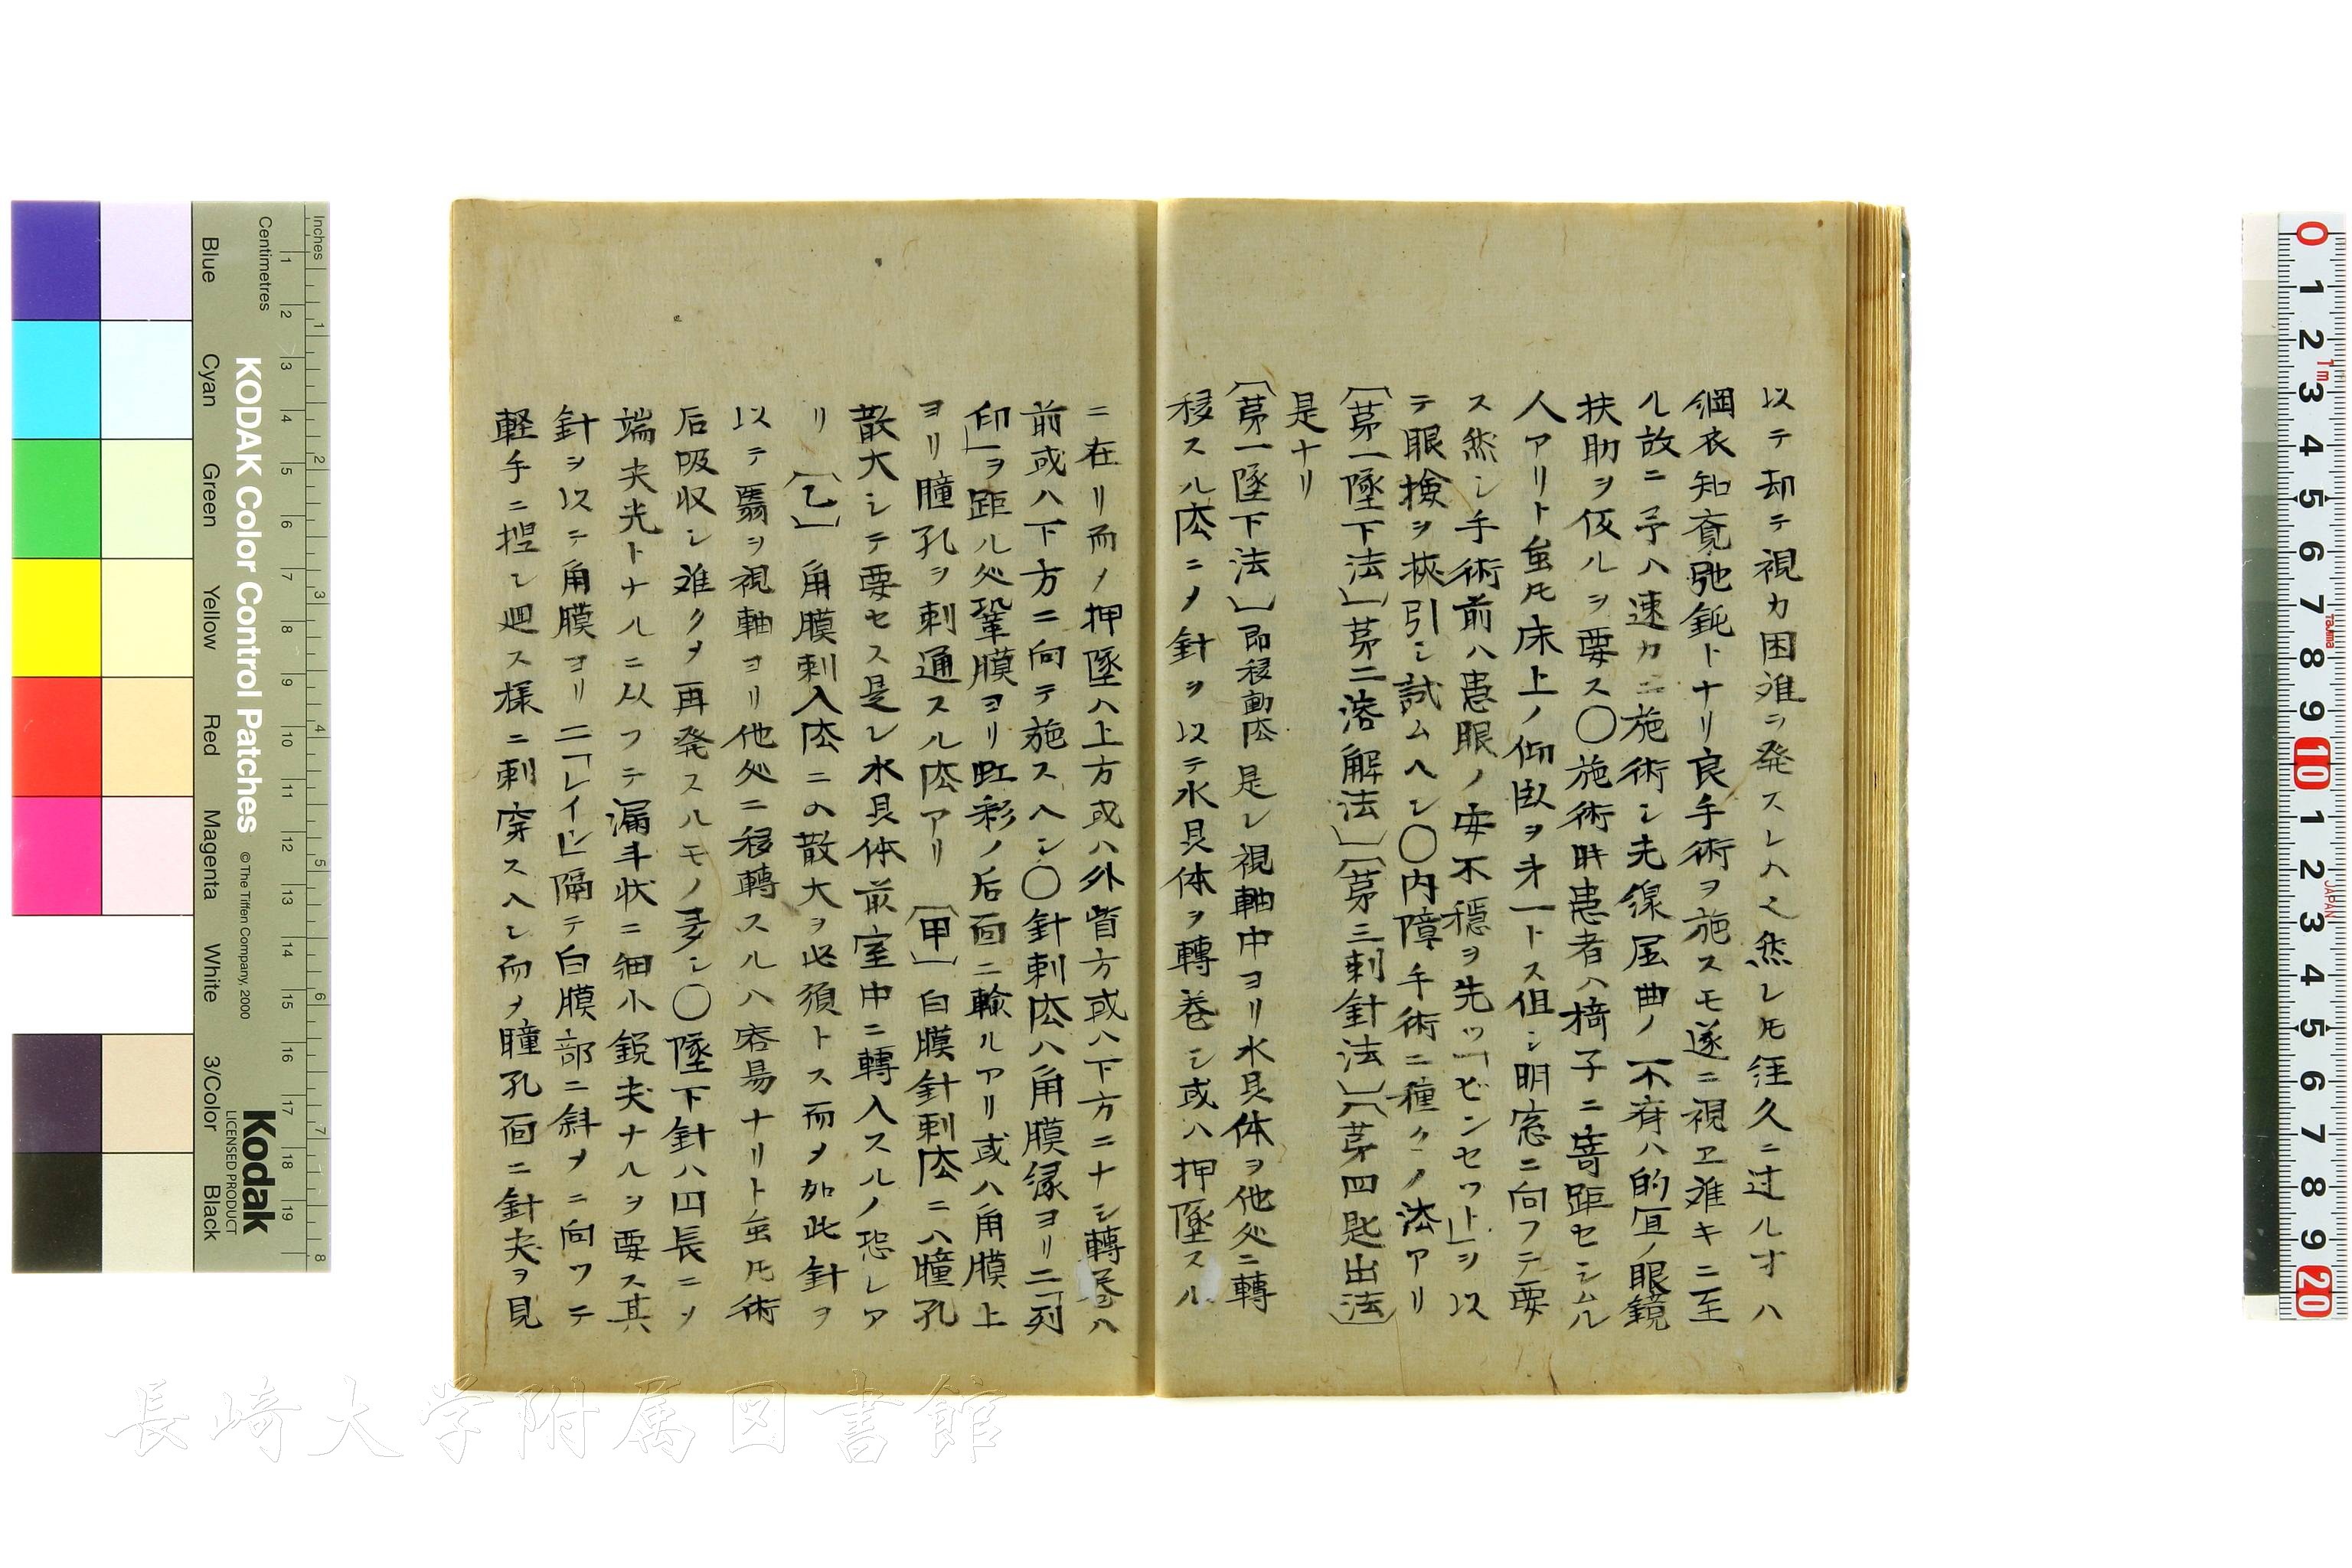 以テ却テ視力困難ヲ発スレハ之然レ𪜈徃久ニ过ルオハ
綱衣知覚弛鈍トナリ良手術ヲ施スモ遂ニ視ヱ难キニ至
ル故ニ予ハ速カニ施術シ光線屈曲ノ不有ハ的宜ノ眼鏡
扶助ヲ仮ルヲ要ス〇施術时患者ハ椅子ニ寄距セシムル
人アリト虽𪜈床上ノ仰臥ヲ才一トス但シ明窓ニ向フテ要
ス然シ手術前ハ患眼ノ安不穏ヲ先ツ「ピンセット」ヲ以
テ眼撿ヲ挾引シ試ムヘシ〇内障手術ニ種々ノ法アリ
〔茅一墜下法〕〔茅二溶解法〕〔茅三刺針法〕〔茅四匙出法〕
是ナリ
〔茅一墜下法〕即移動法是レ視軸中ヨリ水晶体ヲ他処ニ轉
移スル法ニメ針ヲ以テ水晶体ヲ轉巻シ或ハ押墜スル
ニ在リ而メ押墜ハ上方或ハ外眥方或ハ下方ニナシ轉巻ハ
前或ハ下方ニ向テ施スヘシ〇針刺法ハ角膜縁ヨリ二「列
印」ヲ距ル処鞏膜ヨリ虹彩ノ后面ニ輸ルアリ或ハ角膜上
ヨリ瞳孔ヲ刺通スル法アリ〔甲〕白膜針刺法ニハ瞳孔
散大シテ要セス是レ水晶体前室中ニ轉入スルノ恐レア
リ〔乙〕角膜刺入法ニの散大ヲ必須トス而メ如此針ヲ
以テ翳ヲ視軸ヨリ他処ニ移轉スルハ容易ナリト虽𪜈術
后吸収シ难クメ再発スルモノ多シ〇墜下針ハ凹長ニソ
端尖光トナルニ从フテ漏斗状ニ細小鋭尖ナルヲ要ス其
針ヲ以テ角膜ヨリ二「レイン」隔テ白膜部ニ斜メニ向ツテ
軽手ニ捏シ廻ス様ニ刺穿スヘシ而メ瞳孔面ニ針尖ヲ見
長崎大学附属図書館
KODAK Color Control Patches
© The Tiffen Company, 2000
Kodak
LICENSED PRODUCT
Inches
Centimetres
Blue
Cyan
Green
Yellow
Red
Magenta
White
3/Color
Black